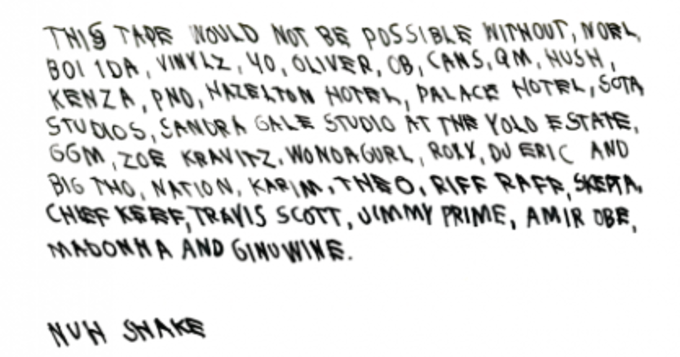 THIS TAPE WOULD NOT BE POSSIBLE WITHOUT, NOEL,
BOI 1DA, VINYLZ, 40, OLIVER, OB, CANS, QM, HUSH,
KENZA, PND, HAZELTON HOTEL, PALACE HOTEL, SOTA
STUDIOS, SANDRA GALE STUDIO AT THE YOLO ESTATE,
GGM, ZOE KRAVITZ, WONDAGURL, ROXY, DJ ERIC AND
BIG THO, NATION, KARIM, THEO, RIFF RAFF, SKEPTA,
CHIEF KEEF, TRAVIS SCOTT, JIMMY PRIME, AMIR OBE,
MADONNA AND GINUWINE.
NUH SHAKE